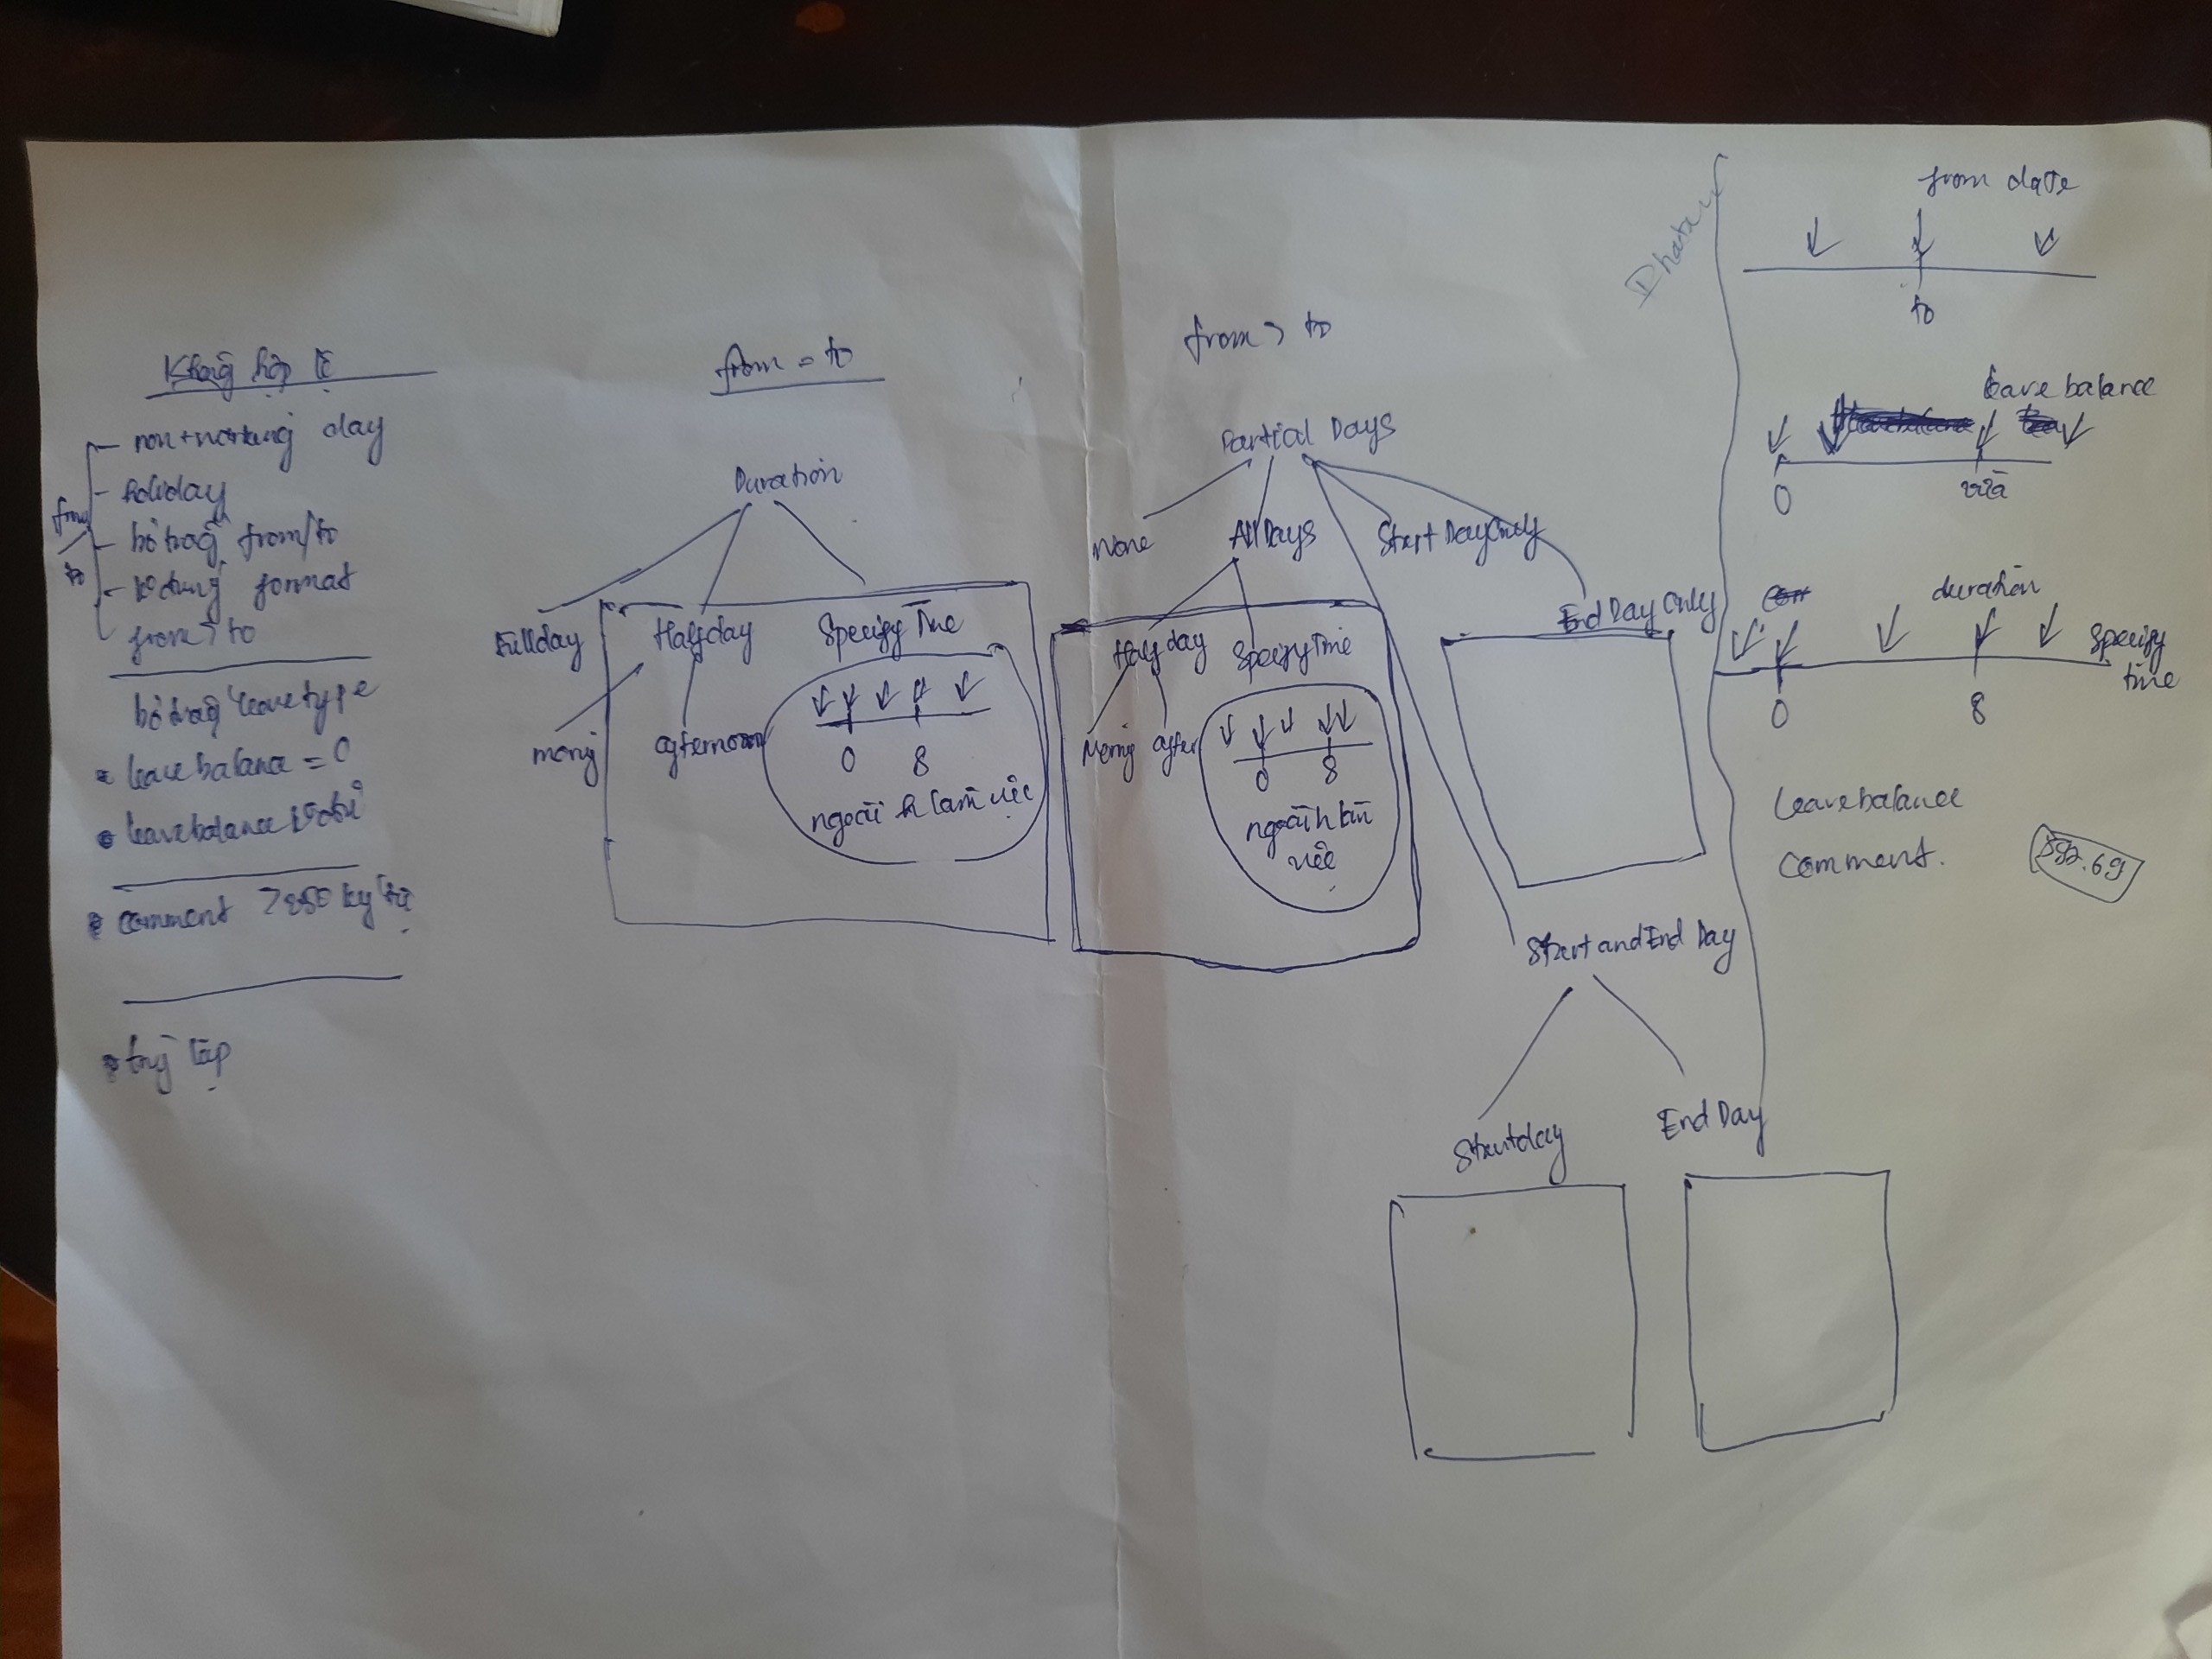 Không hợp lệ
non-working day
holiday
from
to
bỏ trống from/to
k đúng format
from > to
bỏ trống leave type
leave balance = 0
leave balance k đủ
comment > 250 ký tự
trùng lặp
from = to
Duration
Fullday
Halfday
Specify Time
morning
afternoon
0 8
ngoài h làm việc
from > to
Partial Days
None
All Days
Start Day Only
End Day Only
Half day
Specify Time
after
0 8
ngoài h làm
việc
Start and End Day
Startday
End Day
from date
to
leave balance
0
vừa
duration
Specify
time
0 8
Leave balance
comment.